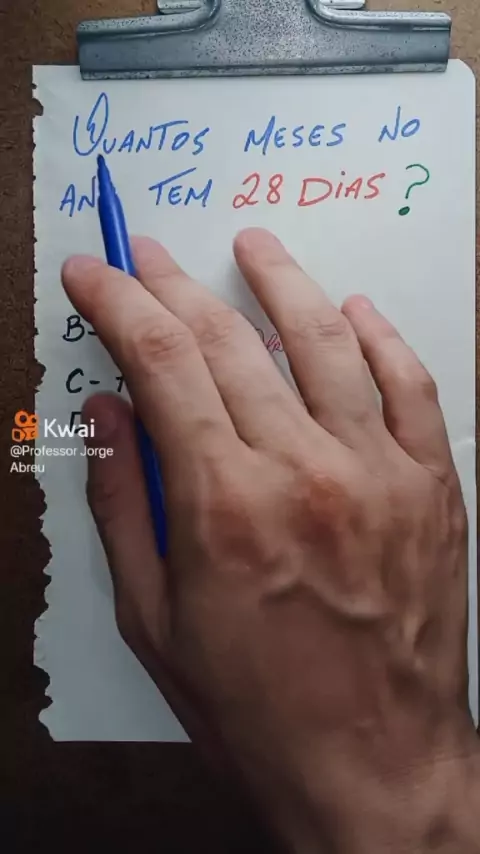 QUANTOS MESES NO
TEM 28 DIAS ?
B-
C-
Kwai
@Professor Jorge
Abreu